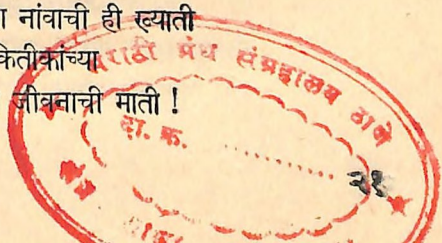 नांवाची ही ख्याती
कितीकांच्या
जीवनाची माती !
मराठी ग्रंथ संग्रहालय ठाणे
दा. क्र.